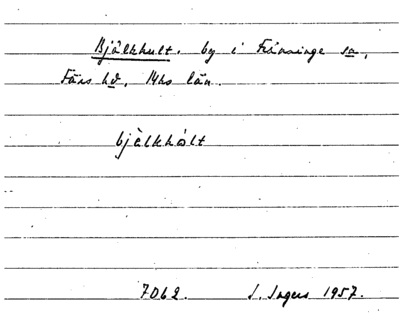 Bjälkhult. by i Fränninge sn,
Färs hd, Mhs län.
bjälkhålt
7062. J. Sagers 1957.